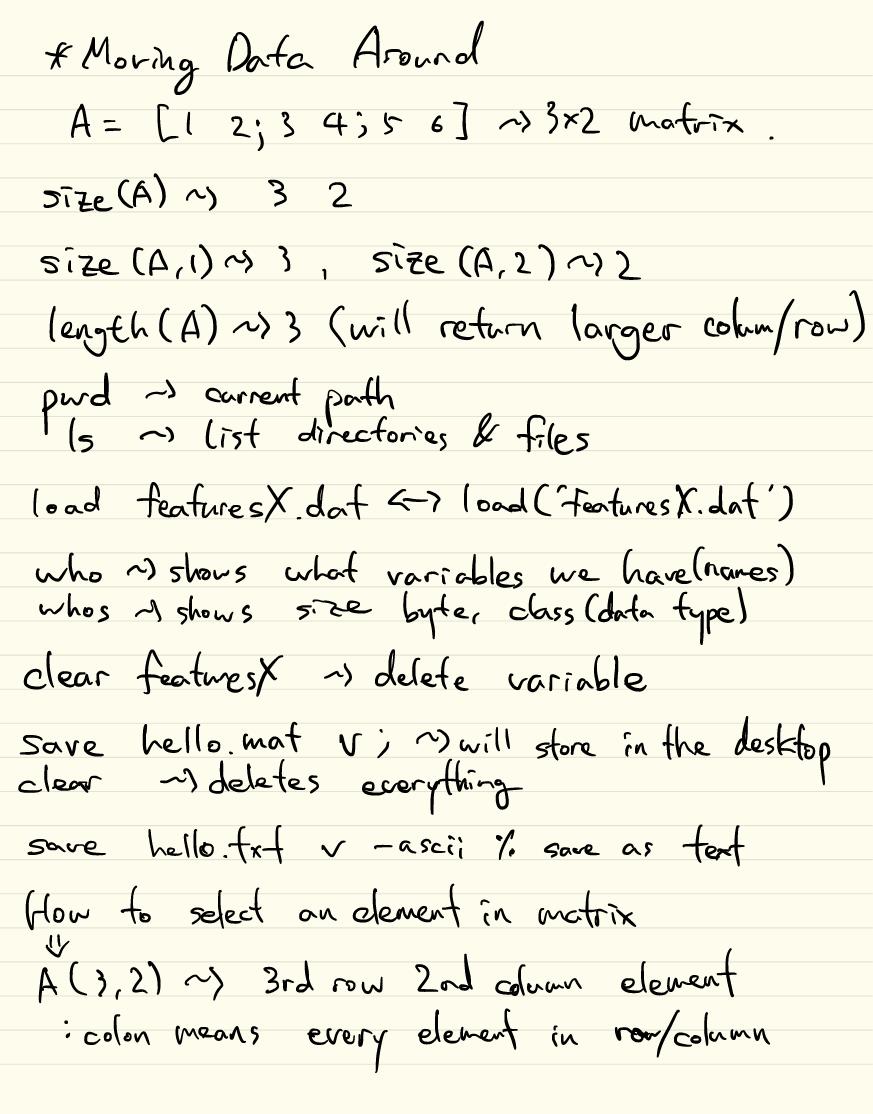 * Moving Data Around
A = [1 2; 3 4; 5 6] ~> 3×2 matrix.
size(A) ~> 3 2
size(A,1) ~> 3, size(A,2) ~> 2
length(A) ~> 3 (will return larger colum/row)
pwd ~> current path
ls ~> list directories & files
load featuresX.dat <-> load('featuresX.dat')
who ~> shows what variables we have(names)
whos ~> shows size byte, class(data type)
clear featuresX ~> delete variable
save hello.mat v; ~> will store in the desktop
clear ~> deletes everything
save hello.txt v -ascii % save as text
How to select an element in matrix
⇓
A(3,2) ~> 3rd row 2nd column element
: colon means every element in row/column